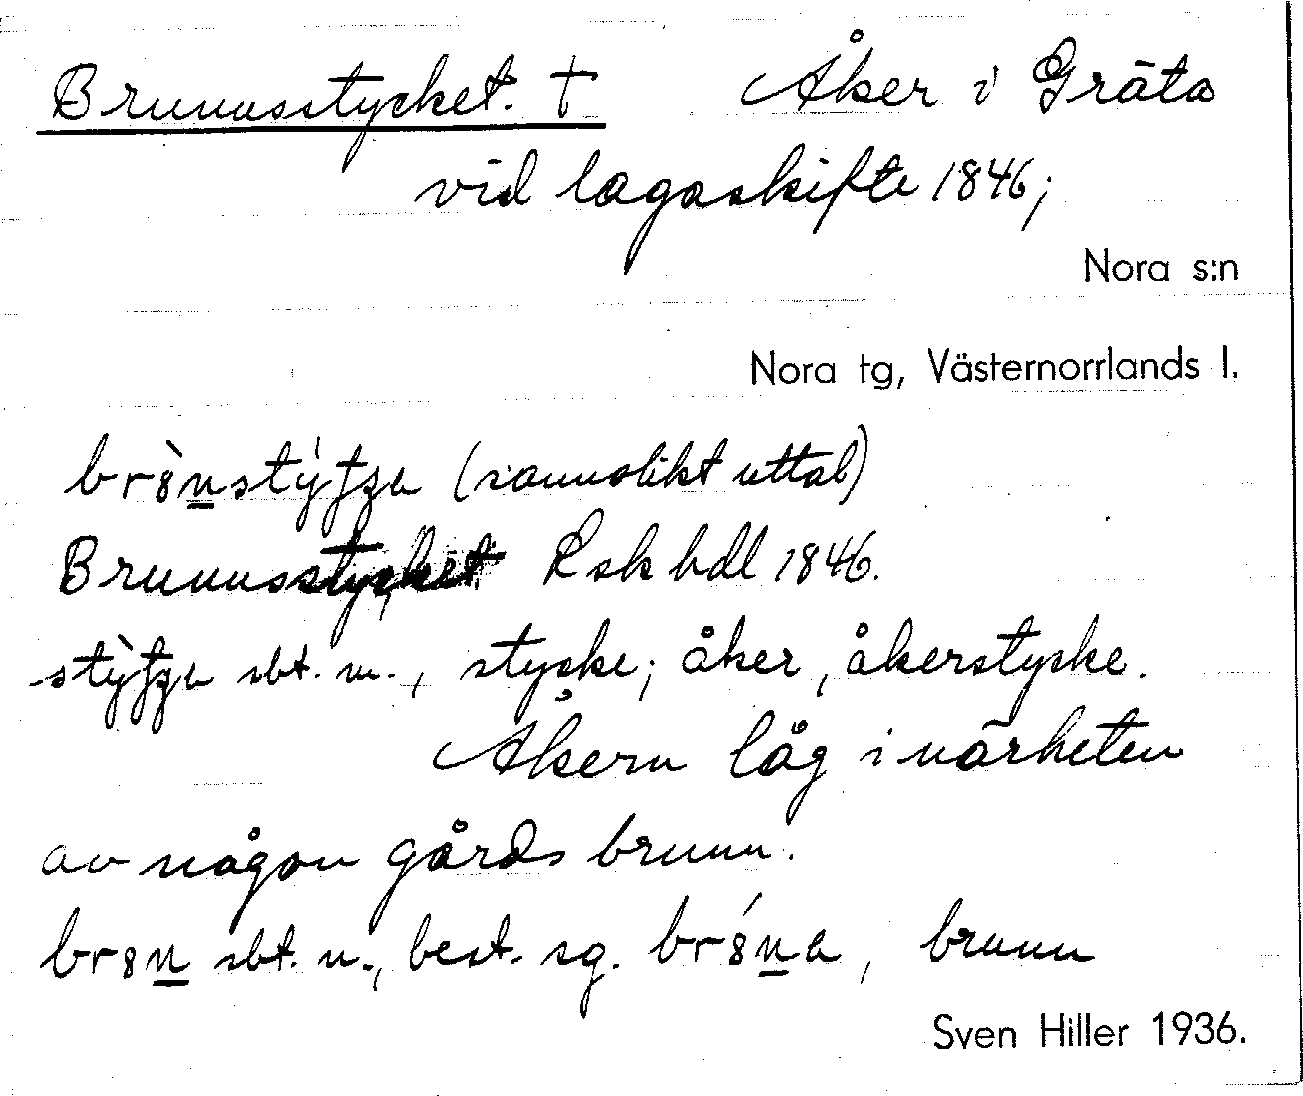 Brunnsstycket. † Åker i Gräta
vid lagaskifte 1846;
Nora s:n
Nora tg, Västernorrlands l.
(sannolikt uttal)
Brunnsstycket Lskhdl 1846.
sbt. n., stycke; åker, åkerstycke.
Åkern låg i närheten
av någon gårds brunn.
br8n sbt. n., best. sg. br8́na, brunn
Sven Hiller 1936.